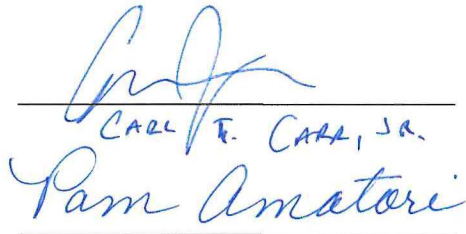 CARL F. CARR, JR.
Pam Amatori